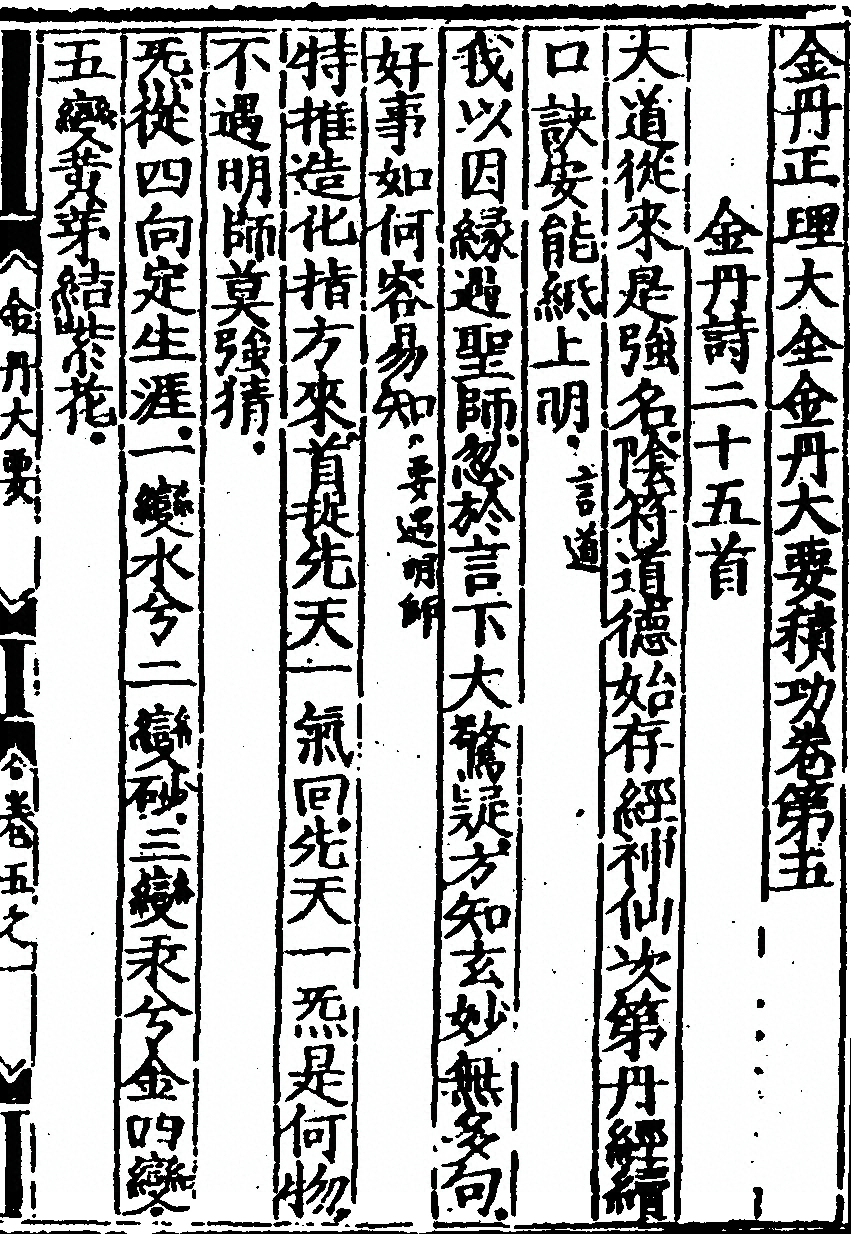 金丹正理大全金丹大要積功卷第五
金丹詩二十五首
大道從來是強名陰符道德始存經神仙次第丹經續
口訣安能紙上明言道
我以因緣遇聖師忽於言下大驚疑方知玄妙無多句
好事如何容易知要遇明師
特推造化指方來首從先天一氣回先天一炁是何物
不遇明師莫強猜
炁從四向定生涯一變水兮二變砂三變汞兮金四變
五變黃芽結紫花
金丹大要 卷五之一